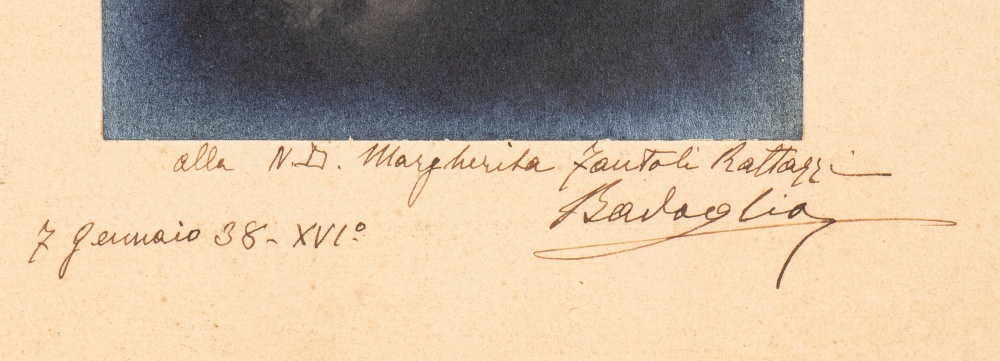 alla N.D. Margherita Fantoli Rattazzi
Badoglio
7 Gennaio 38-XVIº